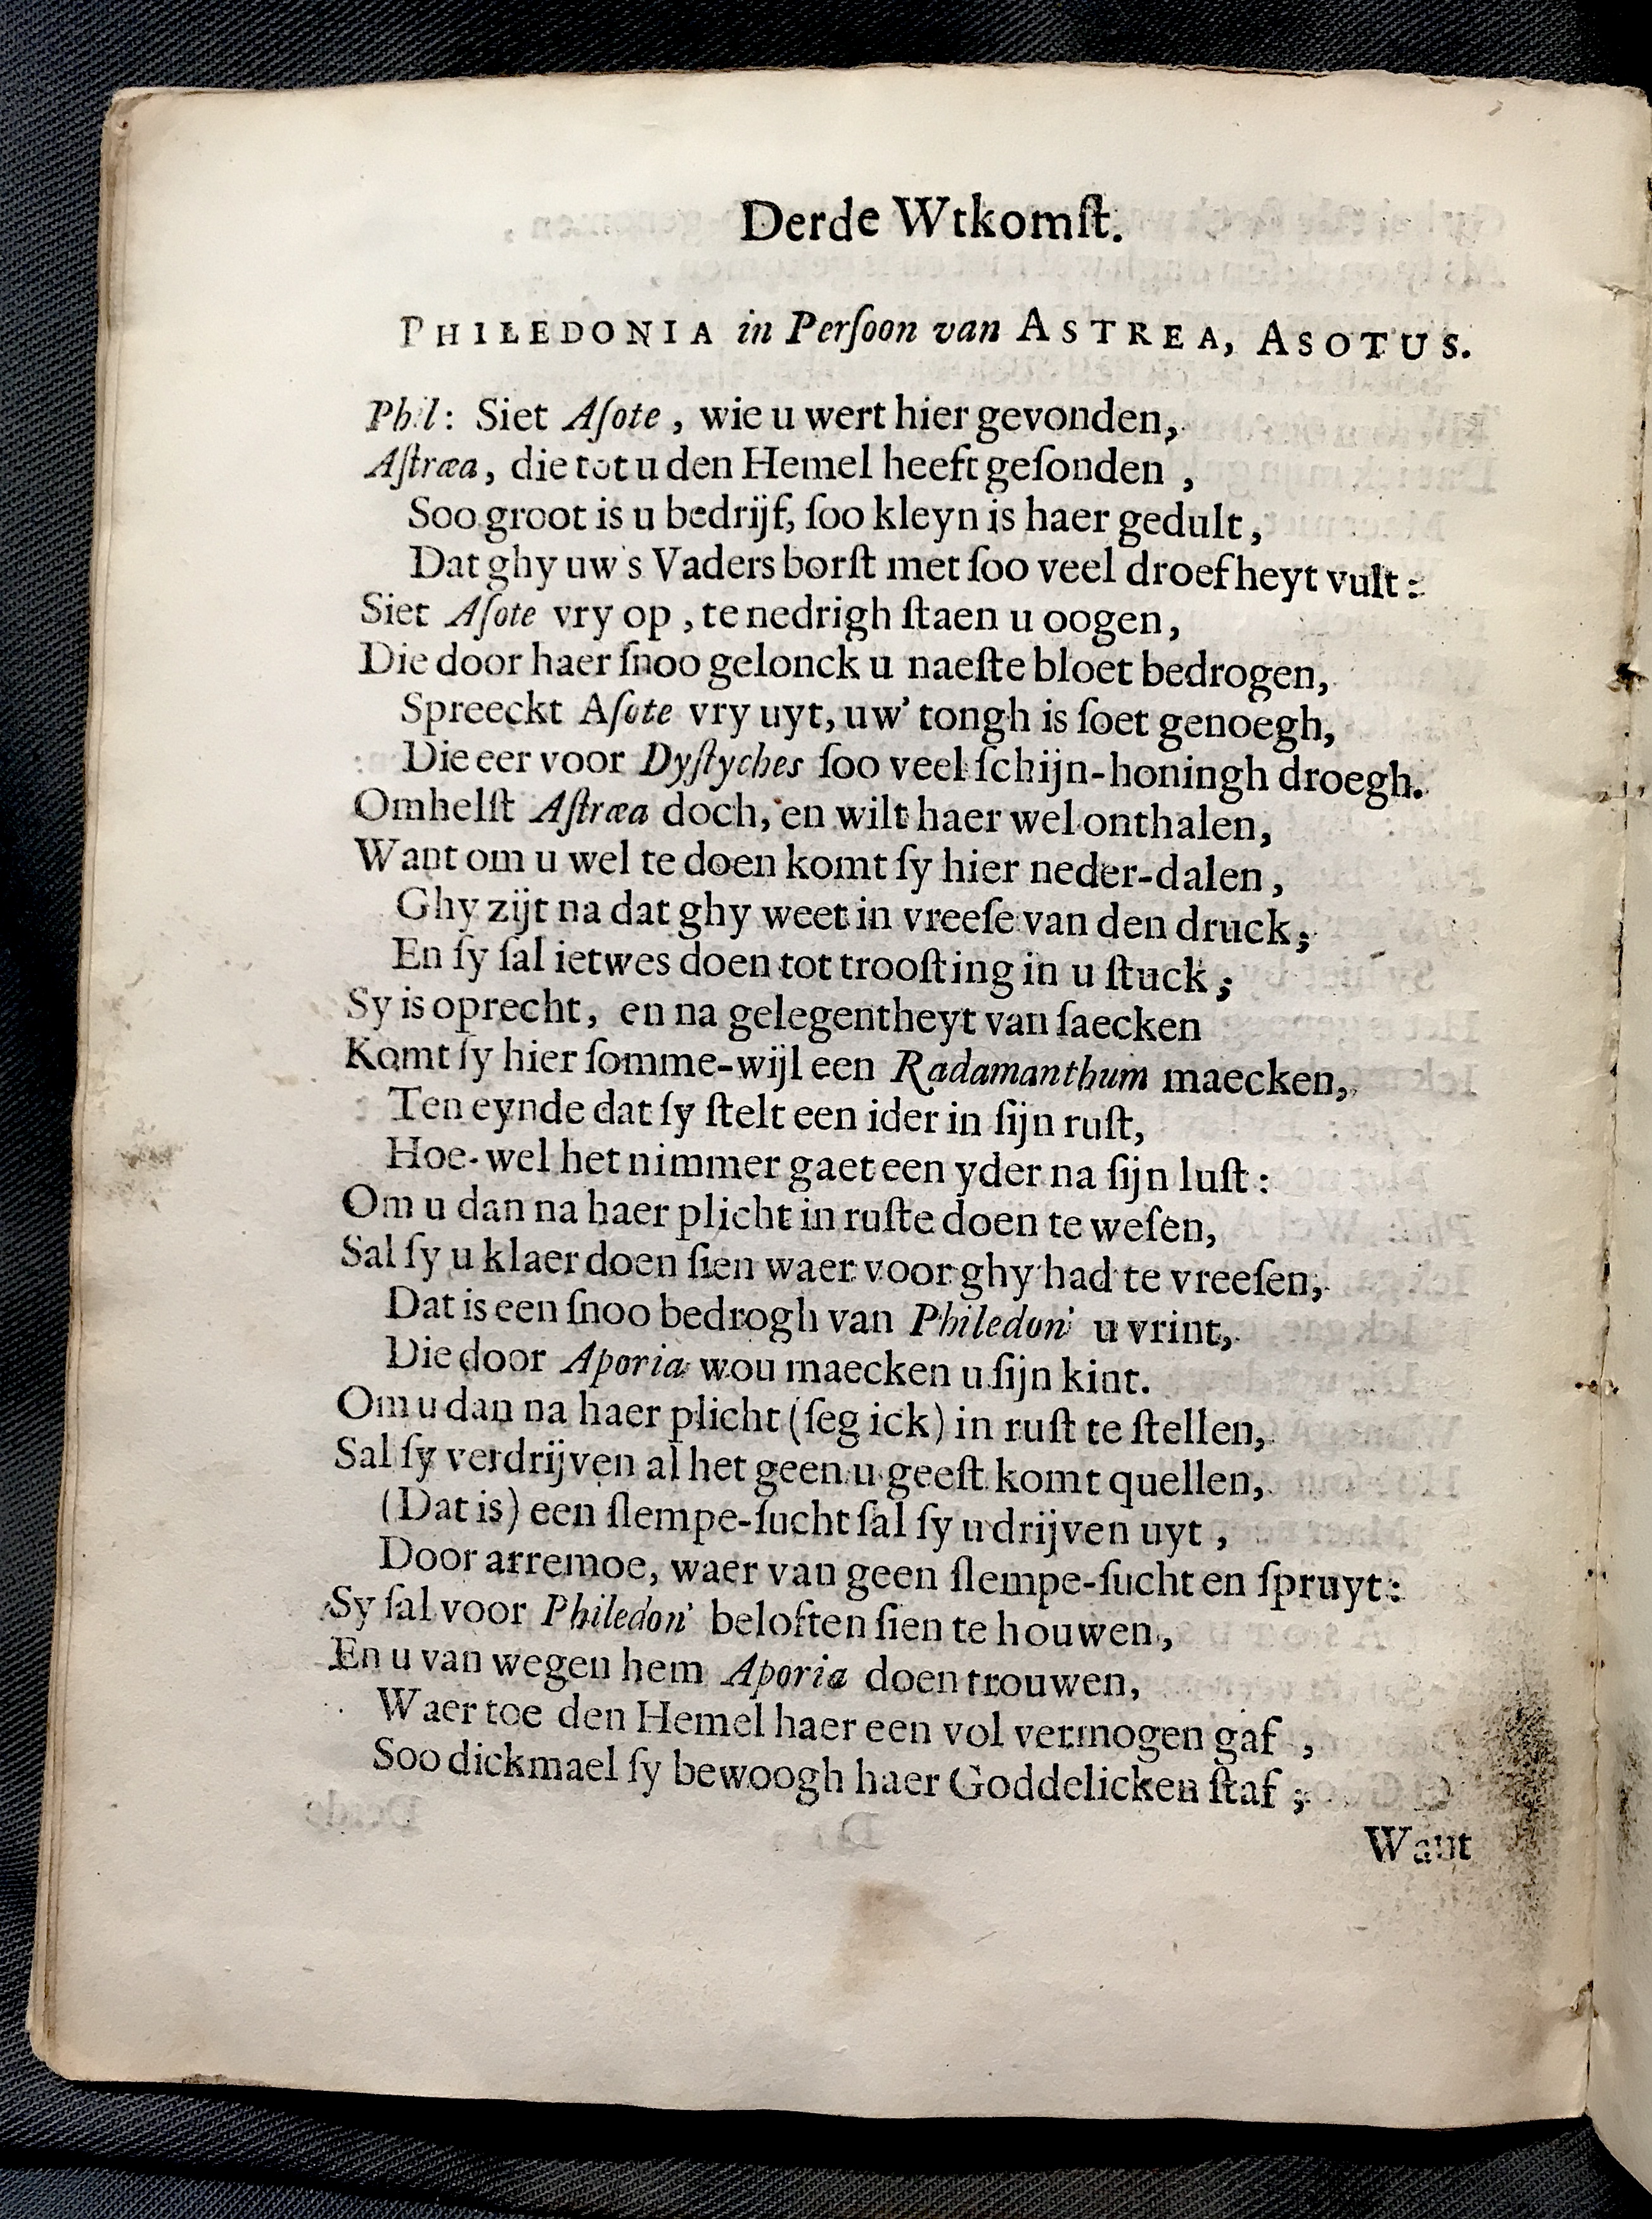 Derde Wtkomſt.
PHILEDONIA in Perſoon van ASTREA, ASOTUS.
Phil: Siet Aſote, wie u wert hier gevonden,
Aſtræa, die tot u den Hemel heeft geſonden,
Soo groot is u bedrijf, ſoo kleyn is haer gedult,
Dat ghy uw's Vaders borſt met ſoo veel droefheyt vult:
Siet Aſote vry op, te nedrigh ſtaen u oogen,
Die door haer ſnoo gelonck u naeſte bloet bedrogen,
Spreeckt Aſote vry uyt, uw' tongh is ſoet genoegh,
Die eer voor Dyſtyches ſoo veel ſchijn-honingh droegh.
Omhelſt Aſtræa doch, en wilt haer wel onthalen,
Want om u wel te doen komt ſy hier neder-dalen,
Ghy zijt na dat ghy weet in vreeſe van den druck;
En ſy ſal ietwes doen tot trooſting in u ſtuck;
Sy is oprecht, en na gelegentheyt van ſaecken
Komt ſy hier ſomme-wijl een Radamanthum maecken,
Ten eynde dat ſy ſtelt een ider in ſijn ruſt,
Hoe-wel het nimmer gaet een yder na ſijn luſt:
Om u dan na haer plicht in ruſte doen te weſen,
Sal ſy u klaer doen ſien waer voor ghy had te vreeſen,
Dat is een ſnoo bedrogh van Philedon' u vrint,
Die door Aporia wou maecken u ſijn kint.
Om u dan na haer plicht (ſeg ick) in ruſt te ſtellen,
Sal ſy verdrijven al het geen u geeſt komt quellen,
(Dat is) een ſlempe-ſucht ſal ſy u drijven uyt,
Door arremoe, waer van geen ſlempe-ſucht en ſpruyt:
Sy ſal voor Philedon' beloften ſien te houwen,
En u van wegen hem Aporia doen trouwen,
Waer toe den Hemel haer een vol vermogen gaf,
Soo dickmael ſy bewoogh haer Goddelicken ſtaf;
Want